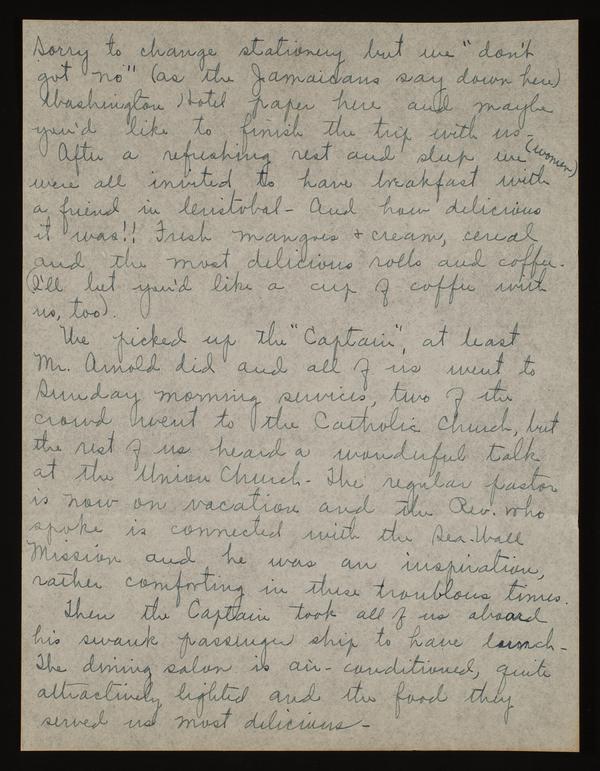 Sorry to change stationery but we "don't
got no" (as the Jamaicans say down here)
Washington Hotel paper here and maybe
you'd like to finish the trip with us -
After a refreshing rest and sleep we (women)
were all invited to have breakfast with
a friend in Cristobal - And how delicious
it was!! Fresh mangoes & cream, cereal
and the most delicious rolls and coffee -
(I'll bet you'd like a cup of coffee with
us, too).
We picked up the "Captain", at least
Mr. Arnold did and all of us went to
Sunday morning services, two of the
crowd went to the Catholic Church, but
the rest of us heard a wonderful talk
at the Union Church - The regular pastor
is now on vacation and the Rev. who
spoke is connected with the Sea-Wall
Mission and he was an inspiration,
rather comforting in these troublous times.
Then the Captain took all of us aboard
his swank passenger ship to have lunch -
The dining salon is air-conditioned, quite
attractively lighted and the food they
served us most delicious -